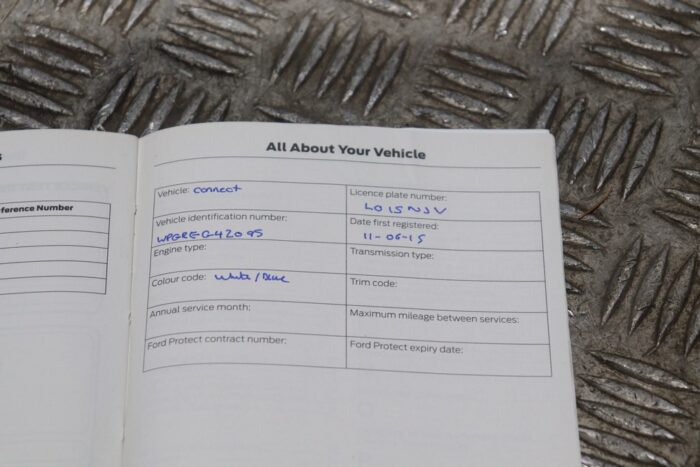 All About Your Vehicle
ference Number
Vehicle: connect
Licence plate number:
LO15NJV
Vehicle identification number:
Date first registered:
WPGREG42095
11-06-15
Engine type:
Transmission type:
Colour code: white/blue
Trim code:
Annual service month:
Maximum mileage between services:
Ford Protect contract number:
Ford Protect expiry date: